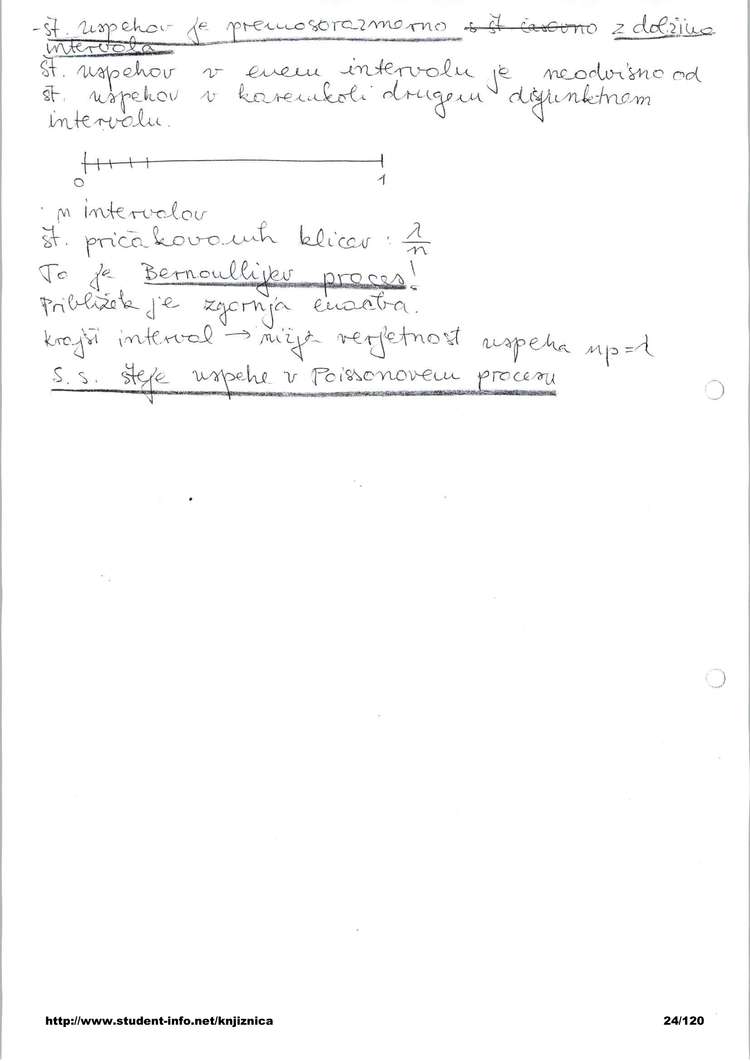 -št. uspehov je premosorazmerno s št časovno z dolžino
intervala
št. uspehov v enem intervalu je neodvisno od
št. uspehov v karemkoli drugem disjunktnem
intervalu.
0 1
n intervalov
št. pričakovanih klicev : λ/n
To je Bernoullijev proces!
Približek je zgornja enačba.
krajši interval → nižja verjetnost uspeha np=λ
S.s. šteje uspehe v Poissonovem procesu
http://www.student-info.net/knjiznica 24/120